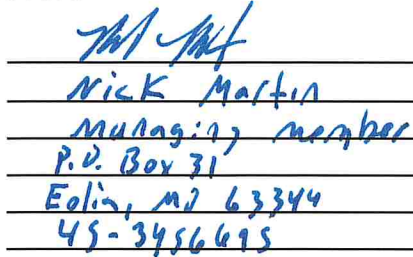 Nick Martin
Managing member
P.O. Box 31
Eolia, MO 63344
45-3456695